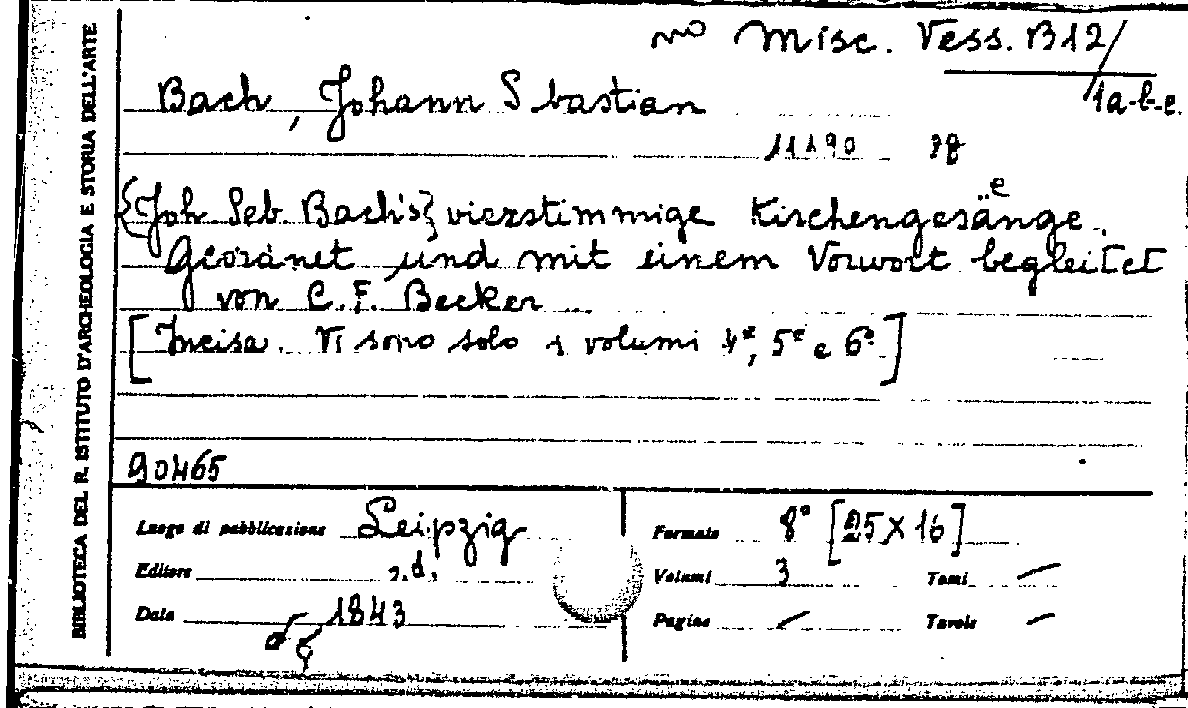 BIBLIOTECA DEL R. ISTITUTO D'ARCHEOLOGIA E STORIA DELL'ARTE
Misc. Vess. B12/
1a-b-c.
Bach, Johann S bastian
11190
{Joh Seb Bach's} vierstimmige Kirchengesänge.
Geordnet und mit einem Vorwort begleitet
von C. F. Becker
[Incisa. Vi sono solo i volumi 4°, 5° e 6°]
90465
Luogo di pubblicazione Leipzig
Editore s.d.
Data 1843
Formato 8° [25X16]
Volumi 3 Tomi —
Pagine — Tavole —